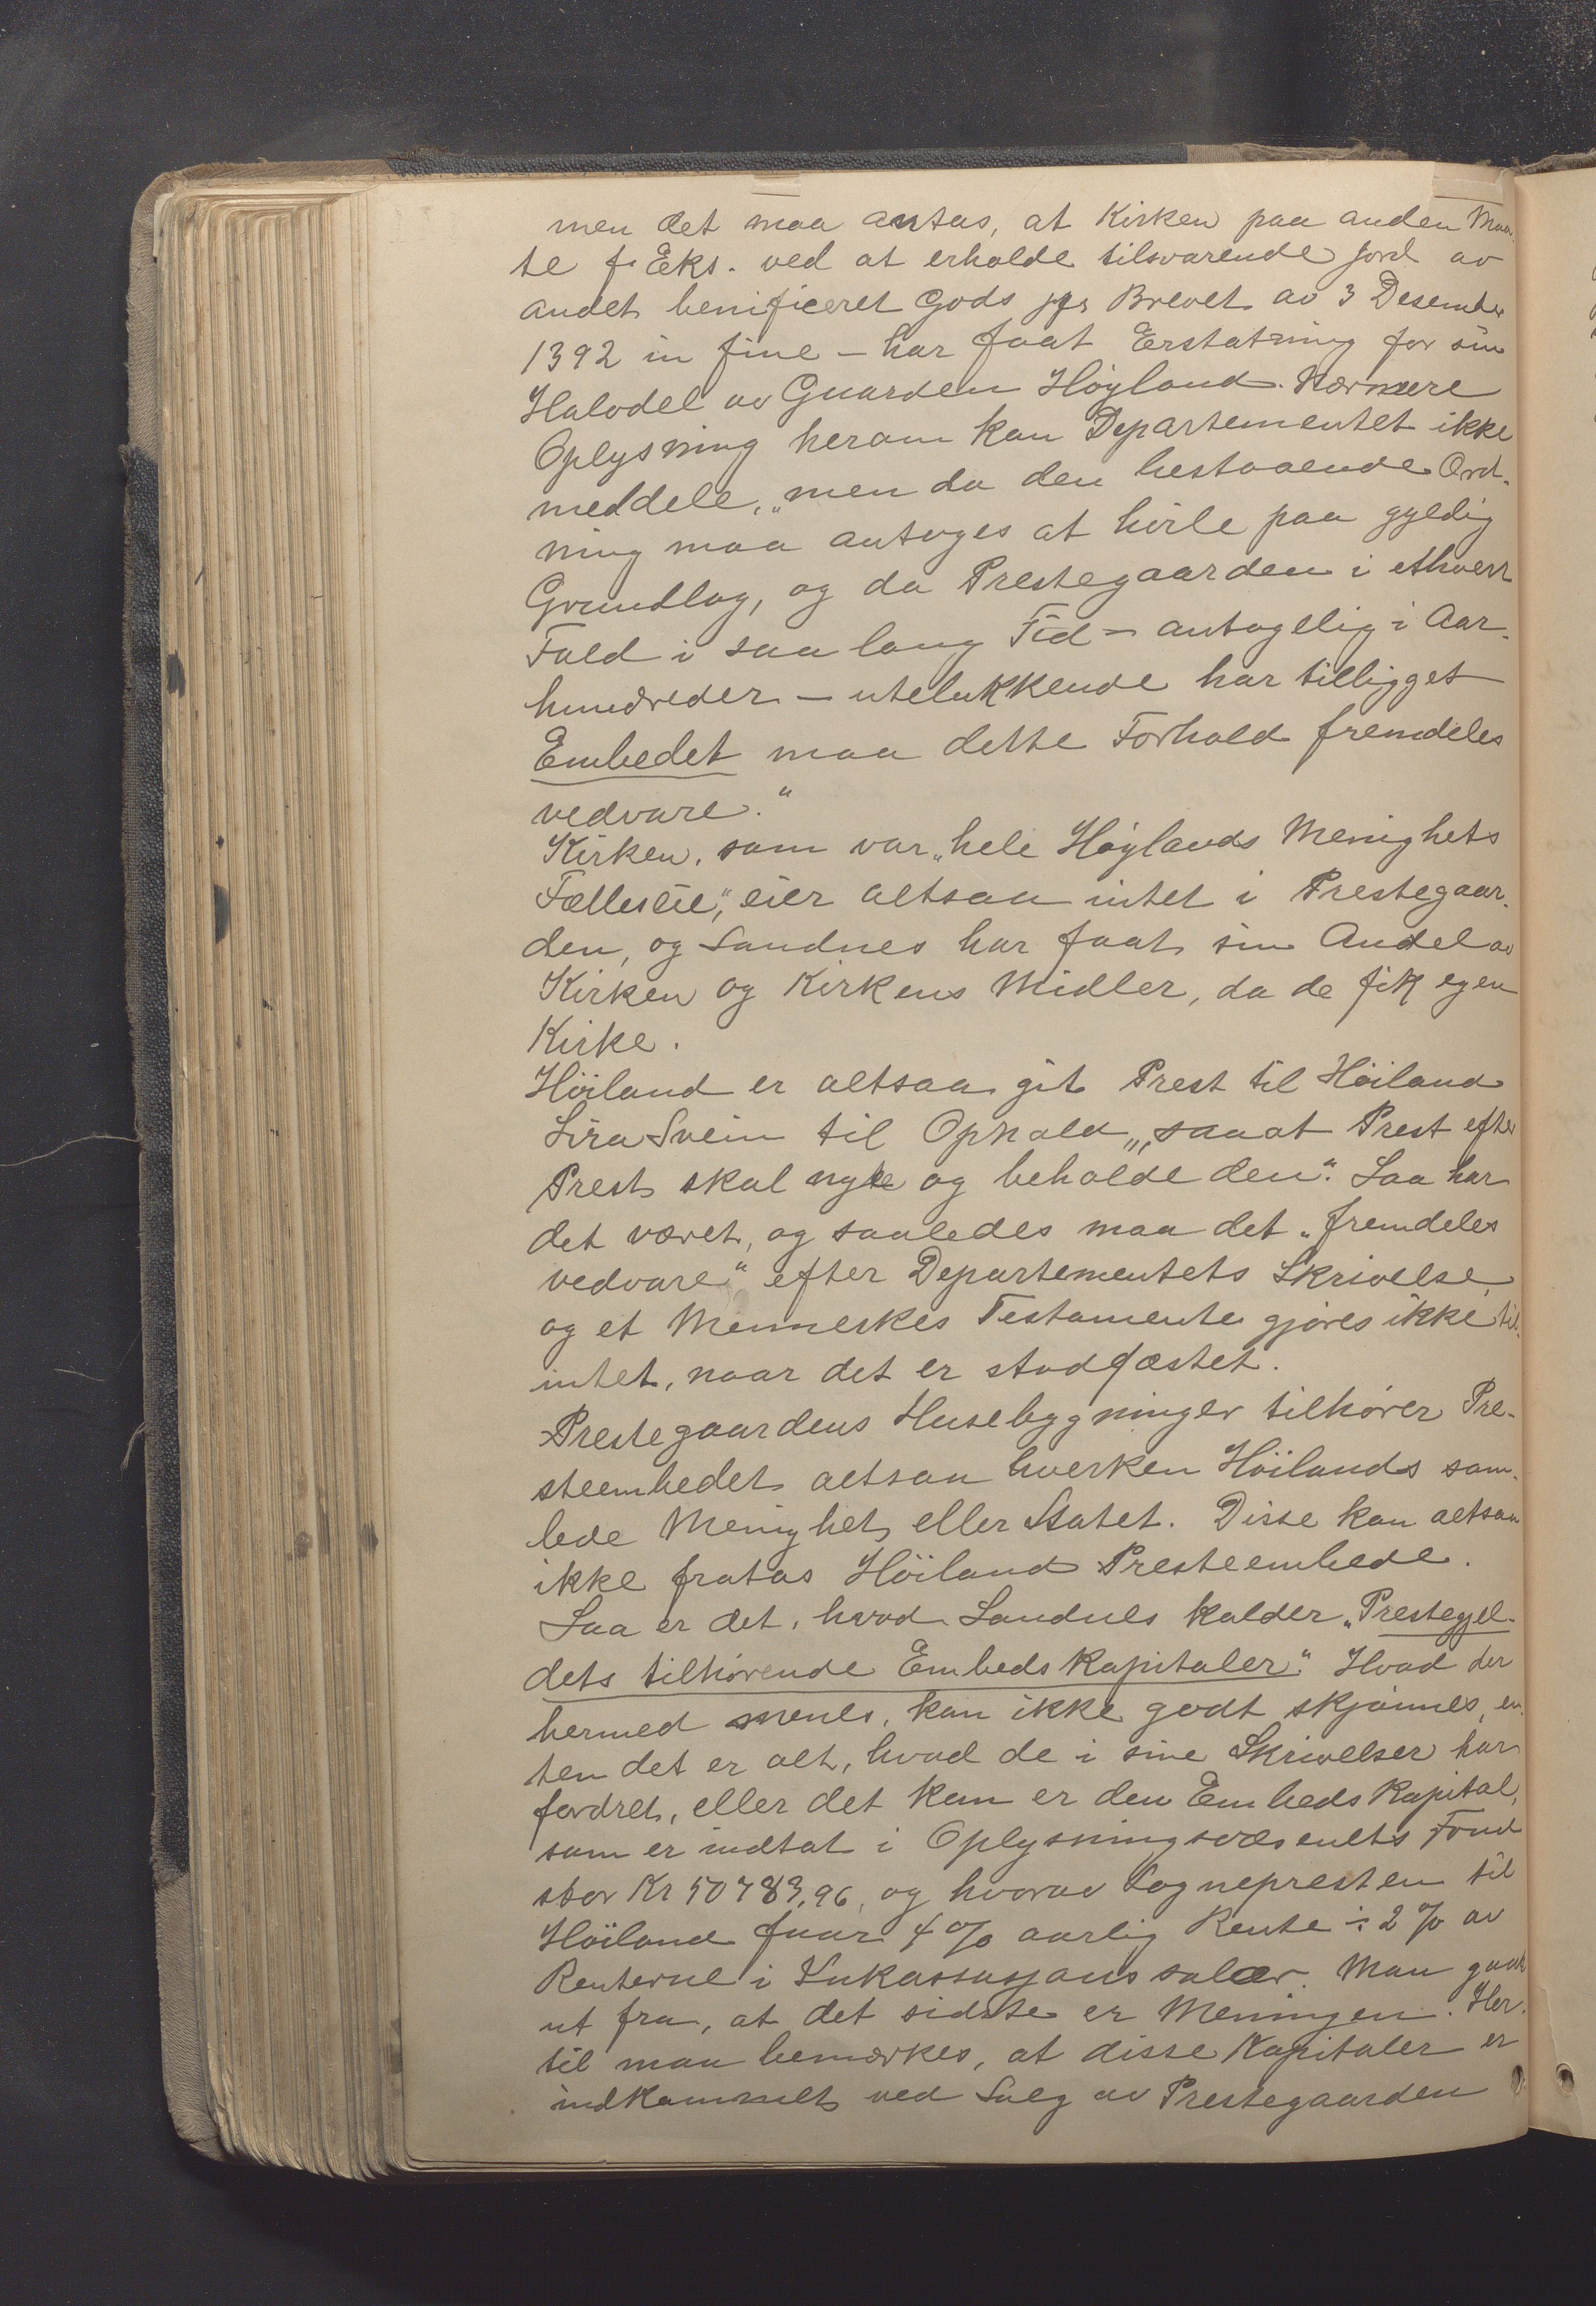 men det maa antas, at Kirken paa anden Maa-
te f. Eks. ved at erholde tilsvarende jord av
andet benificeret Gods jgr Brevet av 3 Desember
1392 in fine – har faat Erstatning for sin
Halvdel av Gaarden Høyland. Nærmere
Oplysning herom kan Departementet ikke
meddele, „men da den bestaaende Ord-
ning maa antages at hvile paa gyldig
Grundlag, og da Prestegaarden i ethvert
Fald i saa lang Tid – antagelig i Aar-
hundreder – utelukkende har tilligget
Embedet maa dette Forhold fremdeles
vedvare."
Kirken, som var „hele Høylands Menighets
Fælleseie", eier altsaa intet i Prestegaar-
den, og Sandnes har faat sin Andel av
Kirken og Kirkens Midler, da de fik egen
Kirke.
Höiland er altsaa git Prest til Höiland
Sira Svein til Ophold „saaat Prest efter
Prest skal nyte og beholde den". Saa har
det været, og saaledes maa det „fremdeles
vedvare" efter Departementets Skrivelse,
og et Menneskes Testamente gjøres ikke til-
intet, naar det er stadfæstet.
Prestegaardens Husebygninger tilhører Pre-
steembedet altsaa hverken Höilands sam-
lede Menighet eller Statet. Disse kan altsaa
ikke fratas Höiland Presteembede.
Saa er det, hvad Sandnes kalder „Prestegjel-
dets tilhørende Embedskapitaler". Hvad der
hermed menes, kan ikke godt skjønnes, en-
ten det er alt, hvad de i sine Skrivelser har
fordret, eller det kun er den Embedskapital,
som er indtat i Oplysningsvæsenets Fond
stor Kr 50783,96, og hvorav Sognepresten til
Höiland faar 4% aarlig Rente ÷ 2% av
Renterne i Inkassasjonssalær. Man gaar
ut fra, at det sidste er Meningen. Her-
til maa bemærkes, at disse Kapitaler er
indkommet ved Salg av Prestegaarden